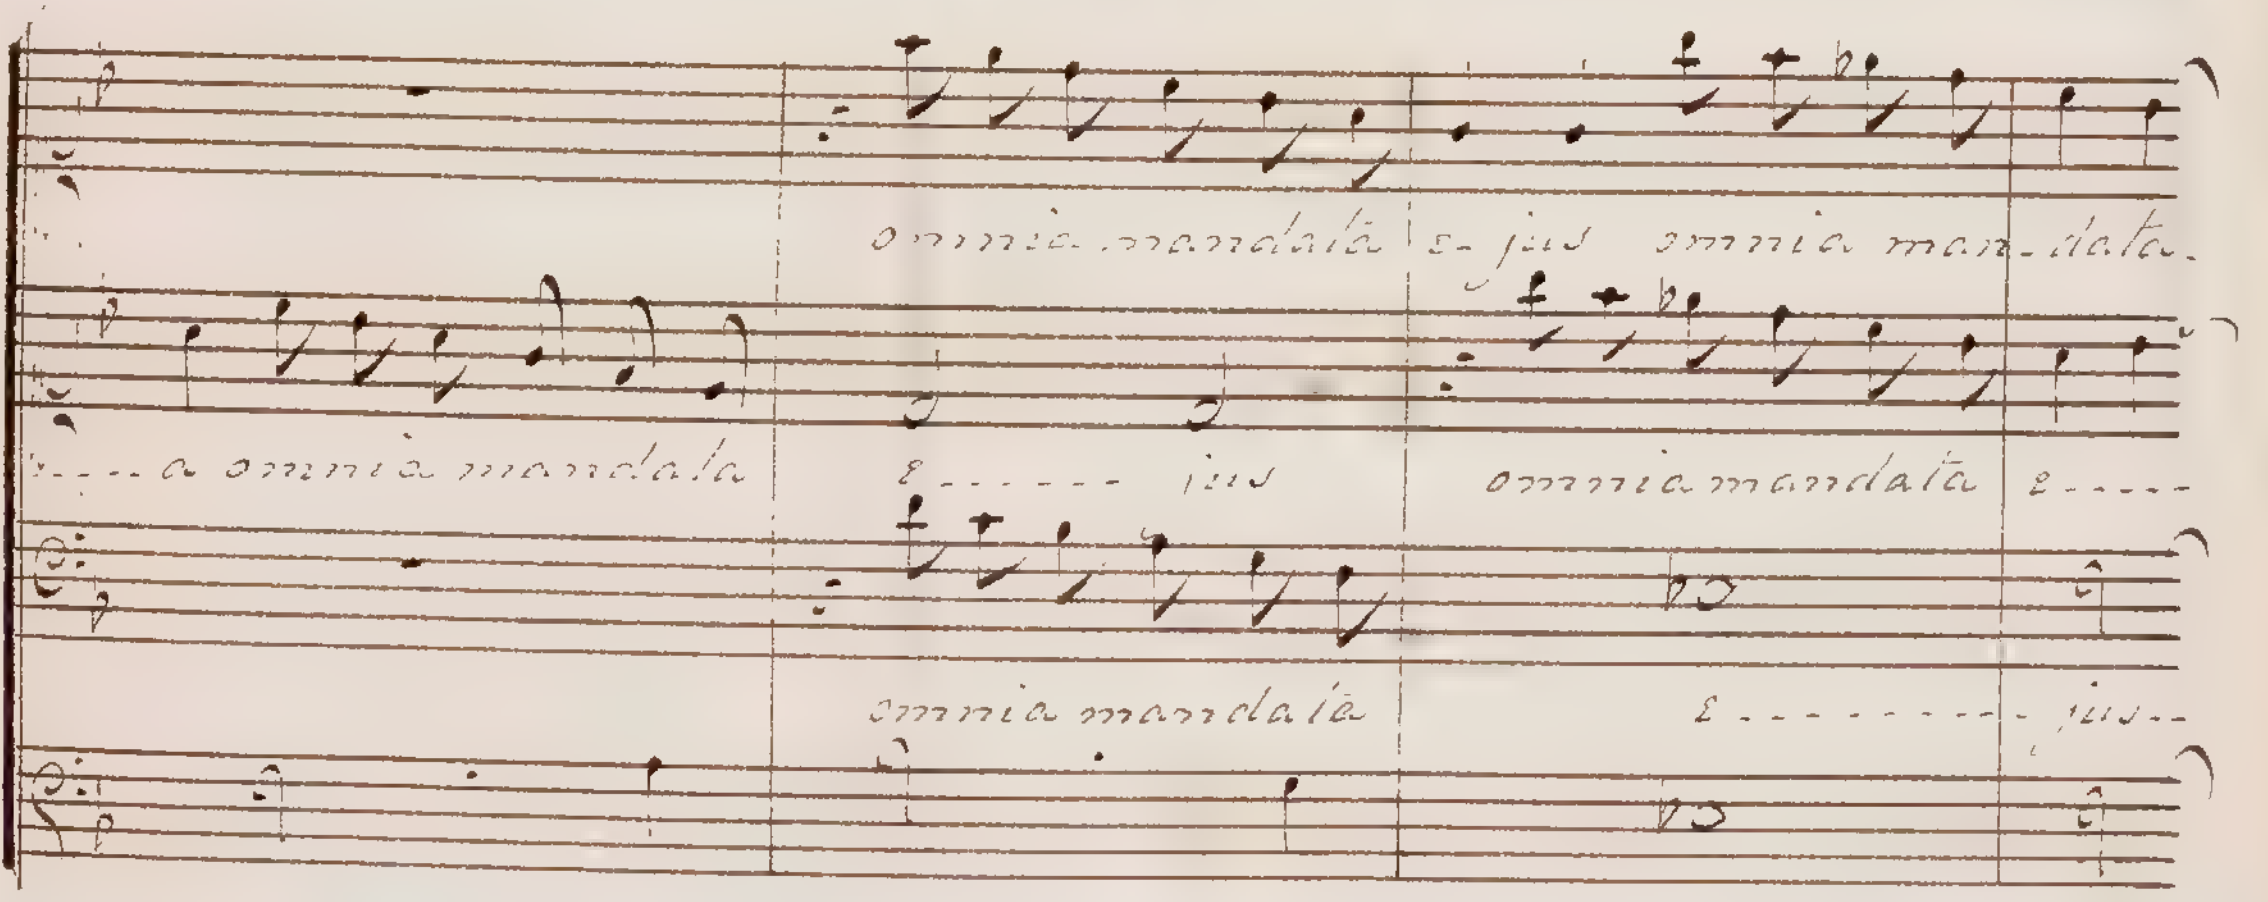 omnia mandata e- jus omnia man- data-
a omnia mandata e------ jus omnia mandata e-----
omnia mandata e--------- jus--